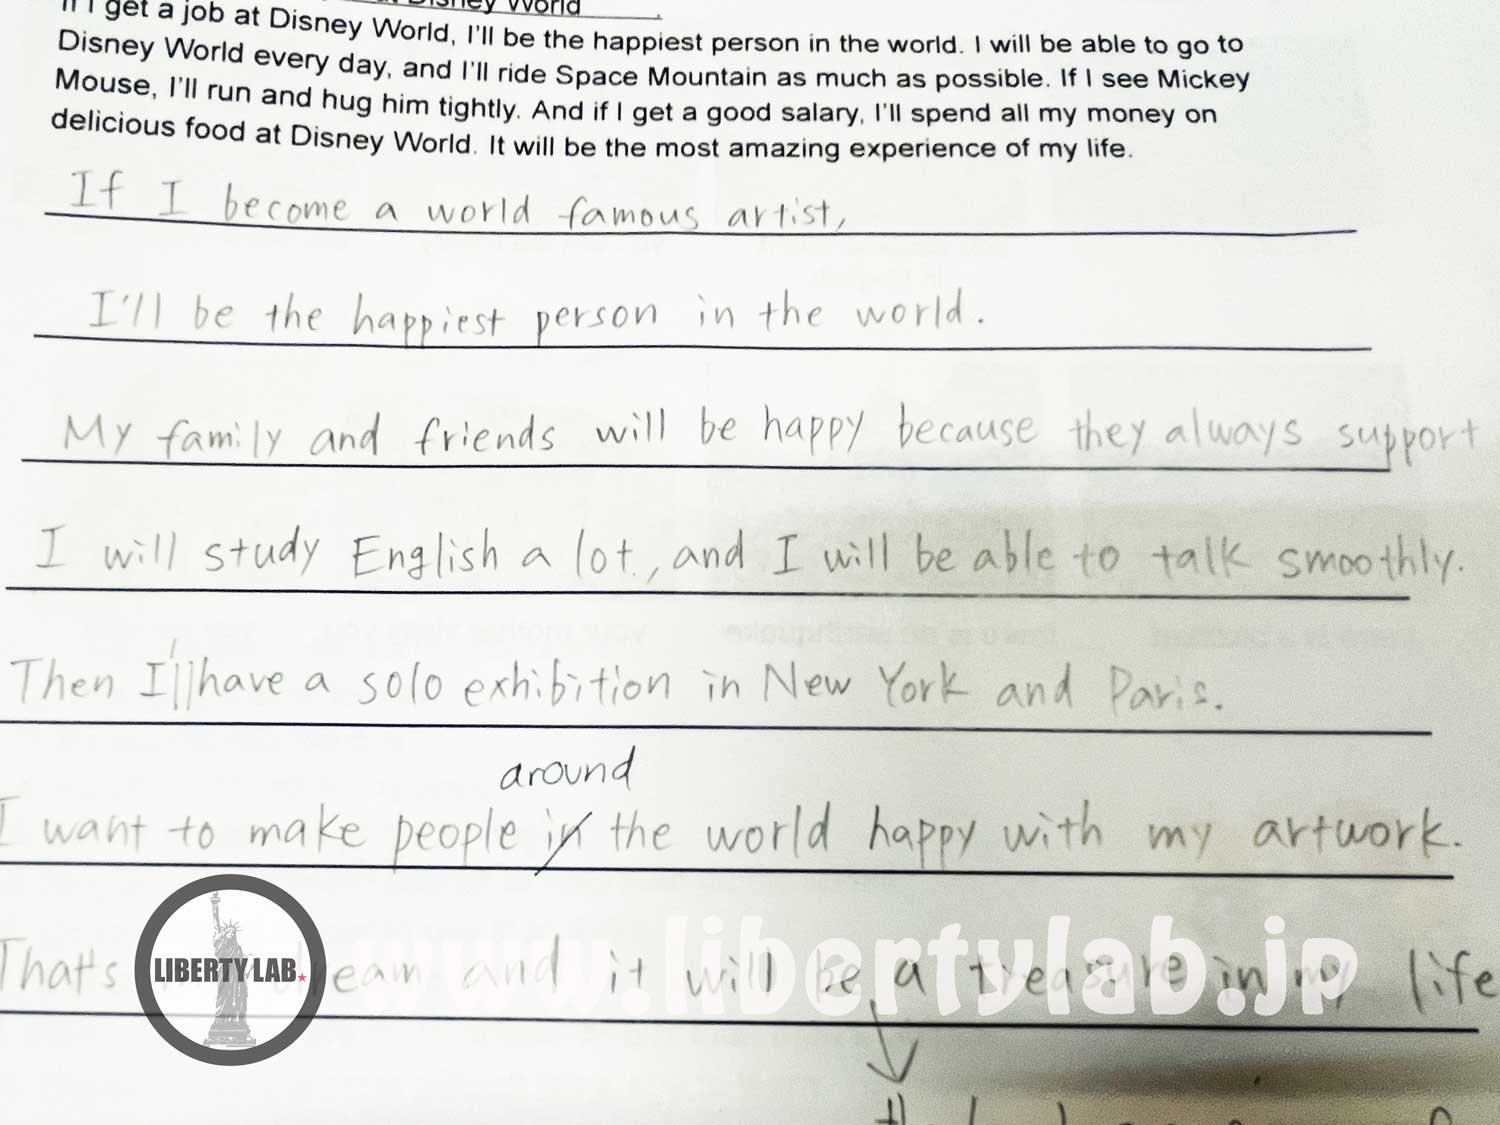 Disney World
If I get a job at Disney World, I'll be the happiest person in the world. I will be able to go to
Disney World every day, and I'll ride Space Mountain as much as possible. If I see Mickey
Mouse, I'll run and hug him tightly. And if I get a good salary, I'll spend all my money on
delicious food at Disney World. It will be the most amazing experience of my life.
If I become a world famous artist,
I'll be the happiest person in the world.
My family and friends will be happy because they always support
I will study English a lot, and I will be able to talk smoothly.
Then I'll have a solo exhibition in New York and Paris.
around
I want to make people in the world happy with my artwork.
That's dream and it will be a treasure in my life
LIBERTY LAB.
www.libertylab.jp